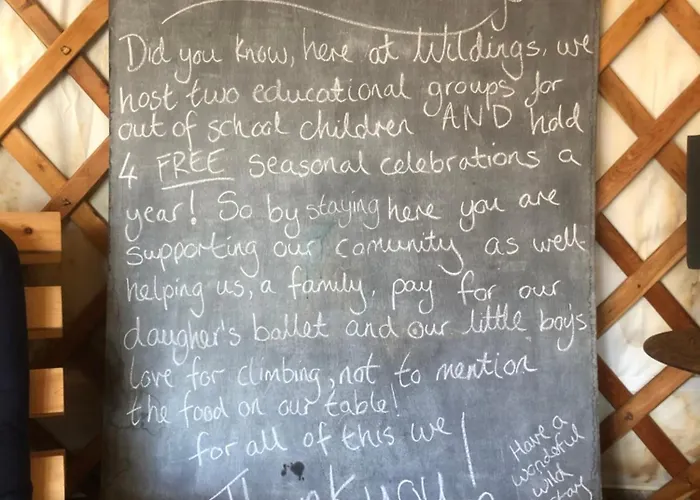 Did you know, here at Wildings, we
host two educational groups for
out of school children AND hold
4 FREE seasonal celebrations a
year! So by staying here you are
supporting our comunity as well
helping us, a family, pay for our
daugher's ballet and our little boy's
love for climbing, not to mention
the food on our table!
for all of this we
Thank you!
Have a
wonderful
wild
stay